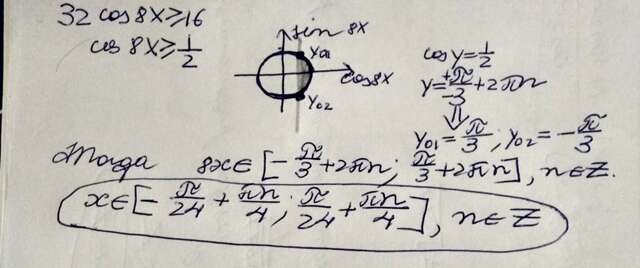 32 cos 8x ≥ 16
cos 8x ≥ 1/2
sin 8x
y01
cos 8x
y02
cos y = 1/2
y = ± π/3 + 2πn
⇓
y01 = π/3; y02 = -π/3
Тогда 8x ∈ [-π/3 + 2πn; π/3 + 2πn], n ∈ Z.
x ∈ [-π/24 + πn/4; π/24 + πn/4], n ∈ Z